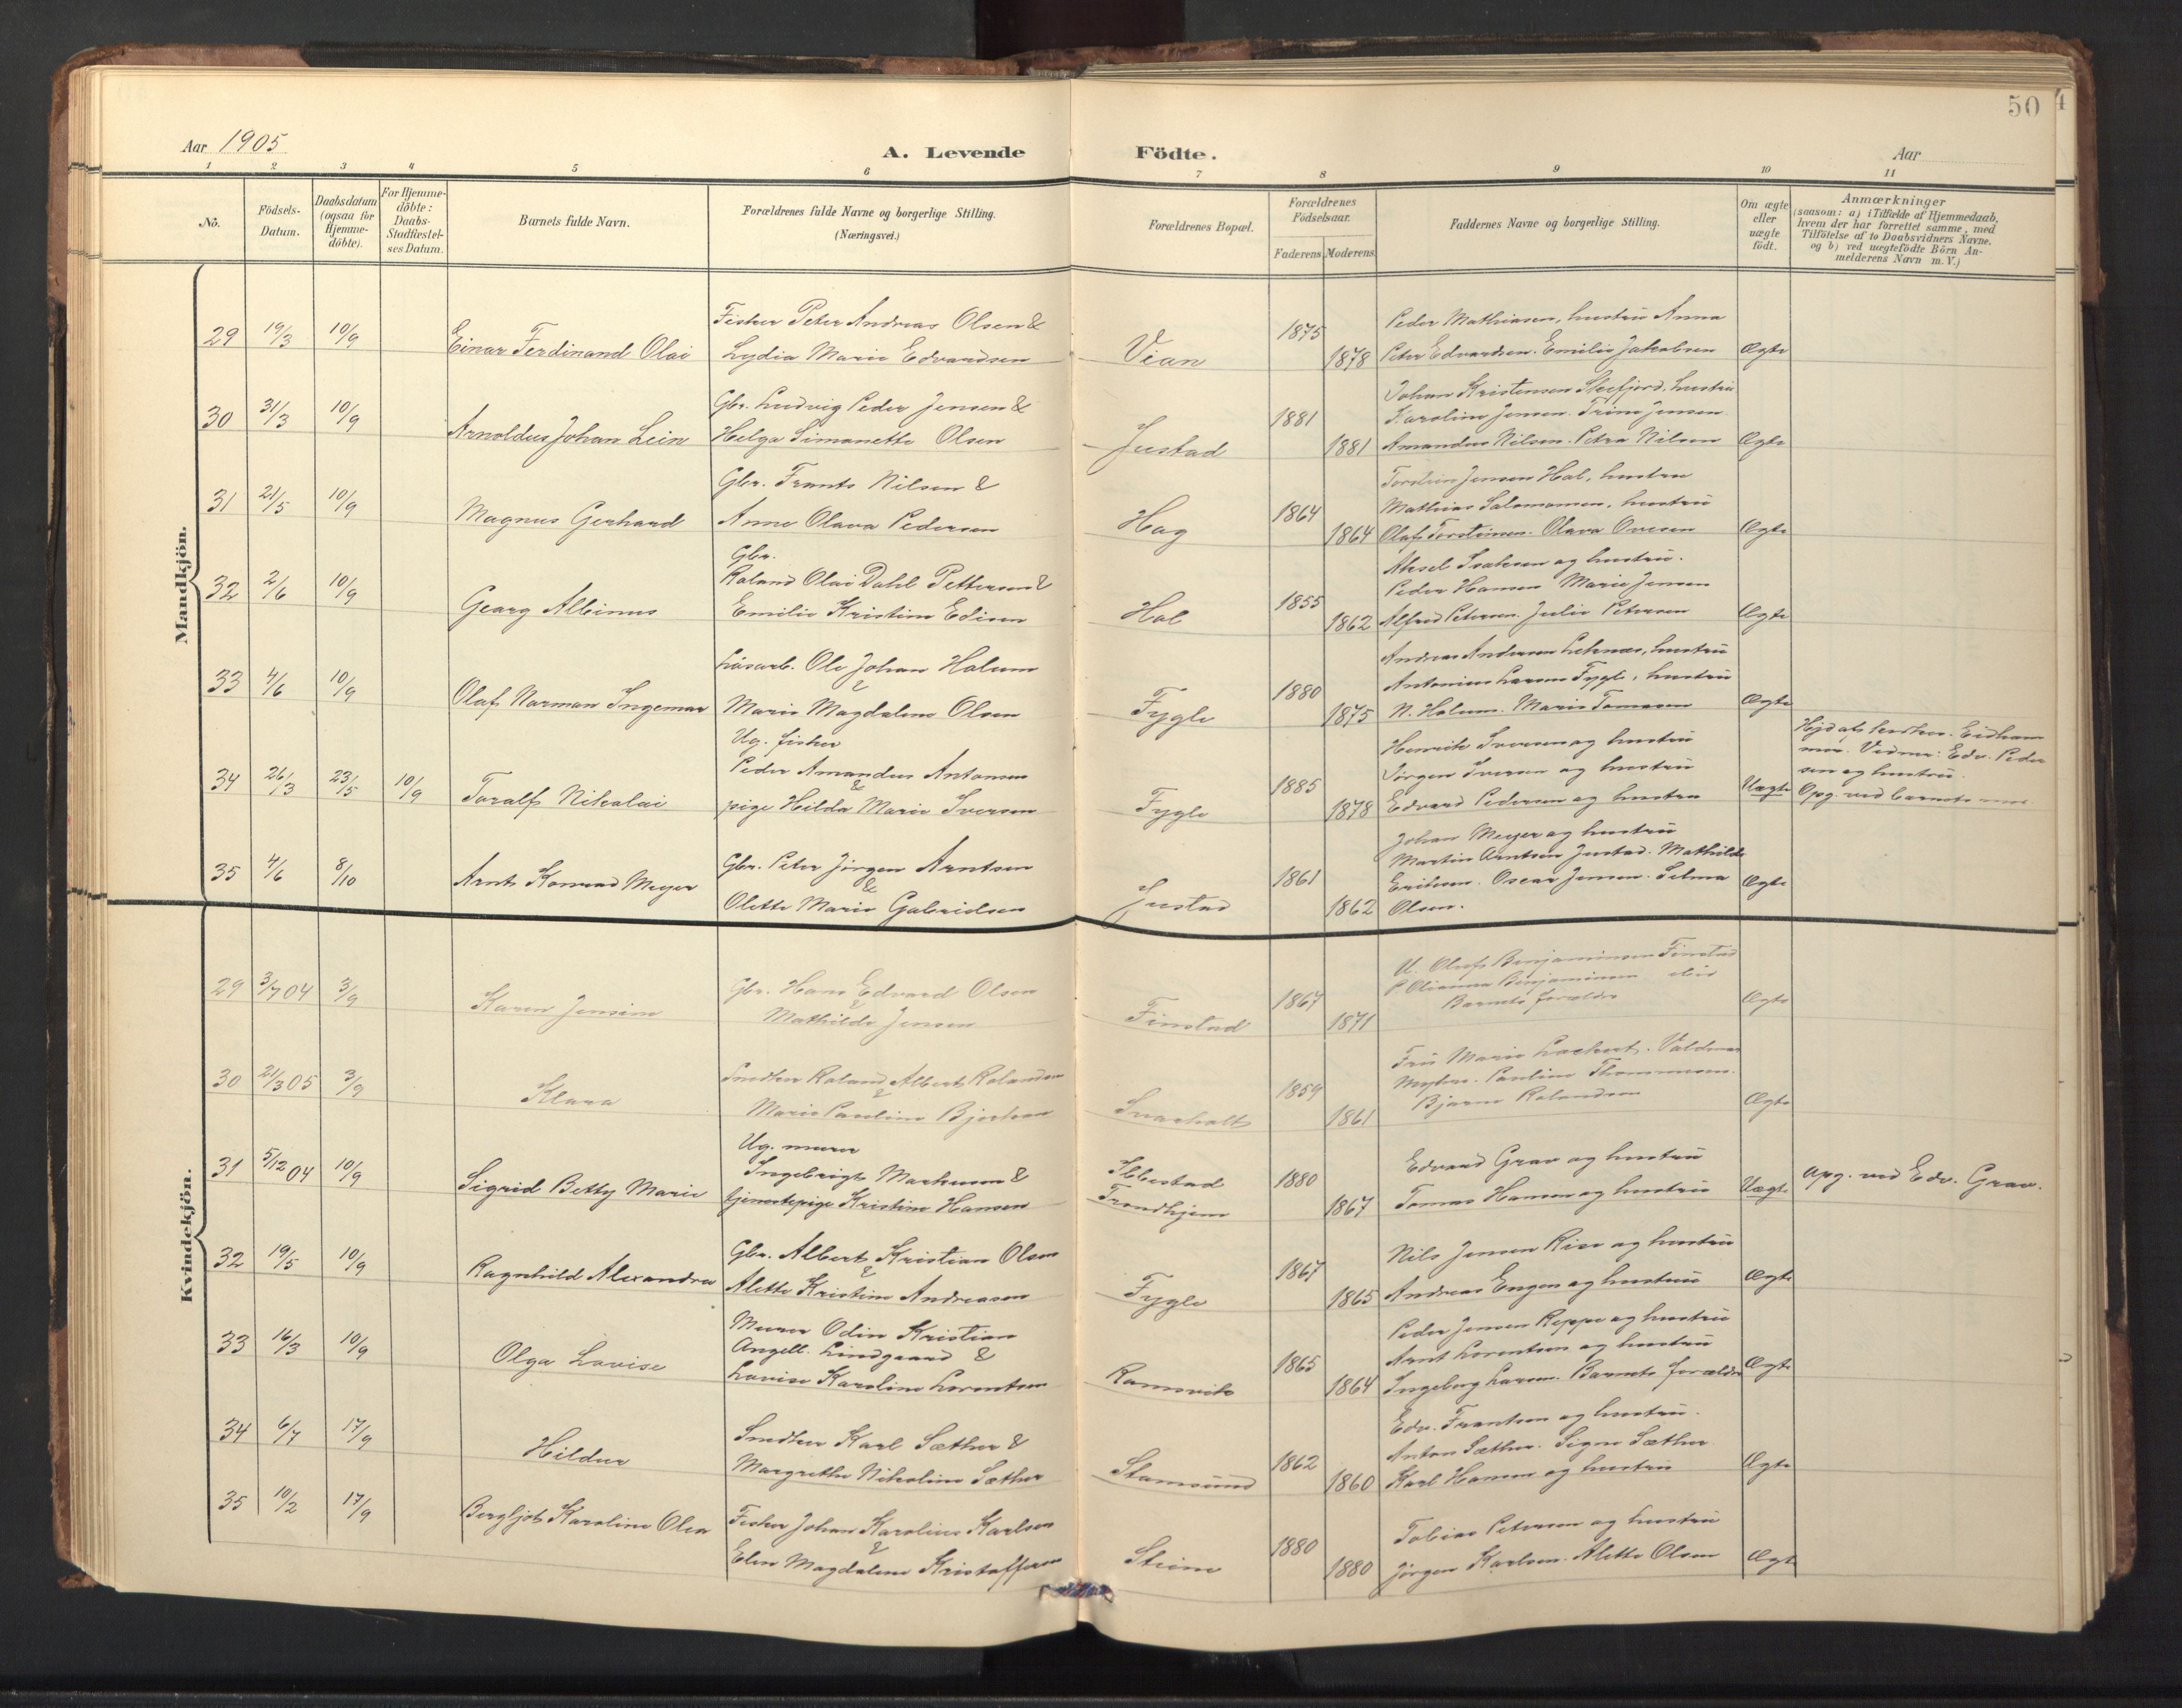 50
Aar 1905
A. Levende
Födte.
Aar
1 2 3 4 5 6 7 8 9 10 11
No.
Födsels-
Datum.
Daabsdatum
(ogsaa for
Hjemme-
döbte).
For Hjemme-
döbte:
Daabs-
Stadfæstel-
ses Datum.
Barnets fulde Navn.
Forældrenes fulde Navne og borgerlige Stilling.
(Næringsvei.)
Forældrenes Bopæl.
Forældrenes
Födselsaar.
Faderens Moderens
Faddernes Navne og borgerlige Stilling.
Om ægte
eller
uægte
födt.
Anmærkninger
(saasom: a) i Tilfælde af Hjemmedaab,
hvem der har forrettet samme, med
Tilföielse af to Daabsvidners Navne.
og b) ved uægtefödte Börn An-
melderens Navn m. V.)
Mandkjön.
29 19/3 10/9
Einar Ferdinand Olai
Fisker Peter Andreas Olsen &
Lydia Marie Edvardsen
Vian
1875
1878
Peder Mathiasen, hustru Anna
Peter Edvardsen. Emilie Jakobsen
Ægte
30 31/3 10/9
Arnoldus Johan Lein
Gbr. Ludvig Peder Jensen &
Helga Simonette Olsen
Justad
1881
1881
Johan Kristensen Skifjord, hustru
Karoline Jensen. Trine Jensen
Amandus Nilsen. Petra Nilsen
Ægte
31 21/5 10/9
Magnus Gerhard
Gbr. Frants Nilsen &
Anne Olava Pedersen
Hag
1864
1864
Torstein Jensen Hol, hustru
Mathias Salomonsen, hustru
Olaf Torsteinsen. Olava Ovesen
Ægte
32 2/6 10/9
Georg Albinus
Gbr.
Roland Olai Dahl Pettersen &
Emilie Kristine Edisen
Hol
1855
1862
Aksel Isaksen og hustru.
Peder Hansen Marie Jensen
Alfred Petersen. Julie Petersen
Ægte
33 4/6 10/9
Olaf Norman Ingemar
Løsarb. Ole Johan Holum
&
Marie Magdalene Olsen
Fygle
1880
1875
Andreas Andersen Leknes, hustru
Antonius Larsen Fygle, hustru
N. Holum. Marie Tomasen
Ægte
34 26/3 23/5 10/9
Toralf Nikolai
Ug. fisker
Peder Amandus Antonsen
&
pige Hilda Marie Iversen
Fygle
1885
1878
Henrik Iversen og hustru
Jörgen Iversen og hustru
Edvard Pedersen og hustru
Uægte
Hjd af Eidham
mer. Vidner: Edv. Peder
sen og hustru.
Opg. ved barnets mor.
35 4/6 8/10
Arnt Konrad Meyer
Gbr. Peter Jörgen Arntsen
&
Olette Marie Gabrielsen
Justad
1861
1862
Johan Meyer og hustru
Martin Arntsen Justad. Mathilde
Eriksen. Oscar Jensen. Selma
Olsen.
Ægte
Kvindekjön.
29 3/7 04 3/9
Karen Jensine
Gbr. Hans Edvard Olsen
&
Mathilde Jensen
Finstad
1867
1871
U. Oluf Benjaminsen Finstad
P. Olianna Benjaminsen ibid
Barnets forældre
Ægte
30 21/3 05 3/9
Klara
Snedker Roland Albert Rolandsen
&
Marie Pauline Bjerkan
Svarholt
1859
1861
Fru Marie Lockert. Valdemar
Pauline Thommesen.
Bjarne Rolandsen
Ægte
31 5/12 04 10/9
Sigrid Betty Marie
Ug. murer
Ingebrigt Markusen &
tjenestepige Kristine Hansen
Ibbestad
Trondhjem
1880
1867
Edvard Grav og hustru
Tomas Hansen og hustru
Uægte
Opg. ved Edv. Grav.
32 19/5 10/9
Ragnhild Alexandra
Gbr. Albert Kristian Olsen
&
Alette Kristine Andreasen
Fygle
1867
1865
Nils Jensen Rise og hustru
Andreas Engen og hustru
Ægte
33 16/3 10/9
Olga Lovise
Murer Odin Kristian
Angell. Lindgaard &
Lovise Karoline Lorentsen
Ramsvik
1865
1864
Peder Jensen Reppe og hustru
Arnt Lorentsen og hustru
Ingeborg Larsen. Barnets forældre
Ægte
34 6/7 17/9
Hildur
Snedker Karl Sæther &
Margrethe Nikoline Sæther
Stamsund
1862
1860
Edv. Frantsen og hustru.
Anton Sæther. Signe Sæther
Karl Hansen og hustru
Ægte
35 10/2 17/9
Bergljot Karoline Olea
Fisker Johan Karolius Karlsen
&
Elen Magdalene Kristoffersen
Steine
1880
1880
Tobias Petersen og hustru
Jörgen Karlsen. Alette Olsen
Ægte